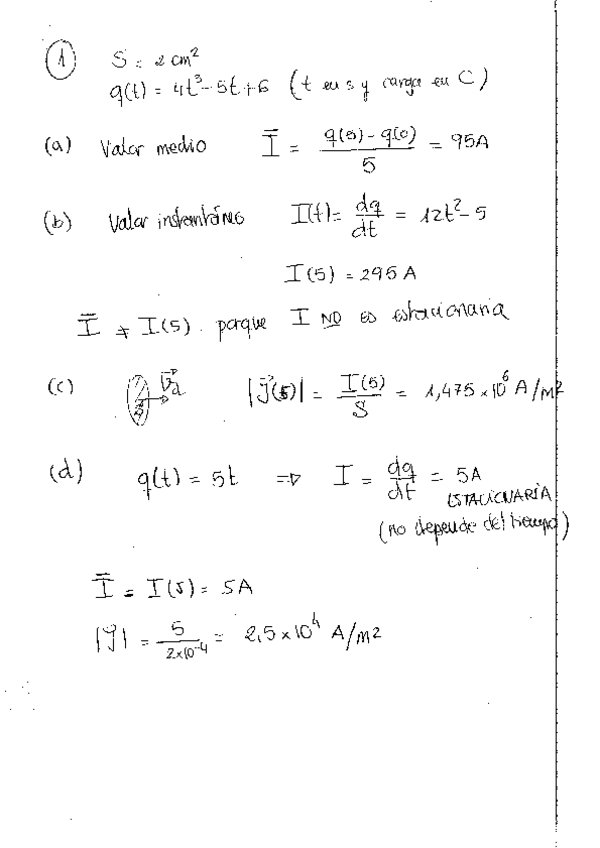 1 S = 2 cm²
q(t) = 4t³-5t+6 (t en s y carga en C)
(a) Valor medio Ī = q(5) - q(0) / 5 = 95A
(b) Valor instantáneo I(t) = dq/dt = 12t² - 5
I(5) = 295 A
Ī ≠ I(5). porque I NO es estacionaria
(c) S v⃗d |J⃗(5)| = I(5)/S = 1,475 × 10⁶ A/m²
(d) q(t) = 5t ⇒ I = dq/dt = 5A
ESTACIONARIA
(no depende del tiempo)
Ī = I(5) = 5A
|J| = 5 / 2×10⁻⁴ = 2,5 × 10⁴ A/m²